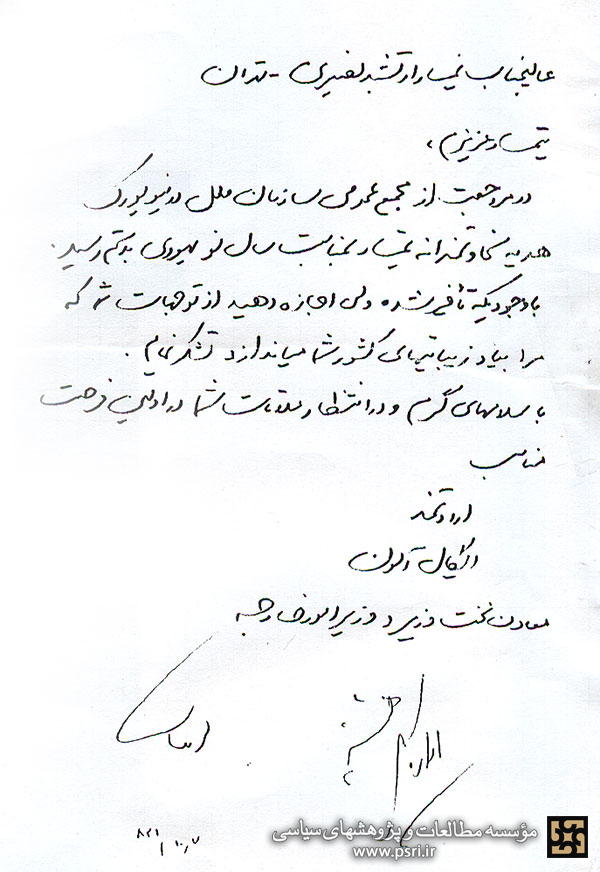 عالیجناب تیمسار ارتشبد نصیری - تهران
تیمسار عزیزم ،
در مراجعت از مجمع عمومی سازمان ملل در نیویورک
هدیه سخاوتمندانه تیمسار بمناسبت سال نو یهودی بدستم رسید .
باوجودیکه تأخیر شده ولی اجازه دهید از توجهات شما که
مرا بیاد زیبائیهای کشور شما میاندازد تشکر نمایم .
با سلامهای گرم و در انتظار ملاقات شما در اولین فرصت
مناسب
ارادتمند
ایگال آلون
معاون نخست وزیر و وزیر امور خارجه
مؤسسه مطالعات و پژوهشهای سیاسی
www.psri.ir